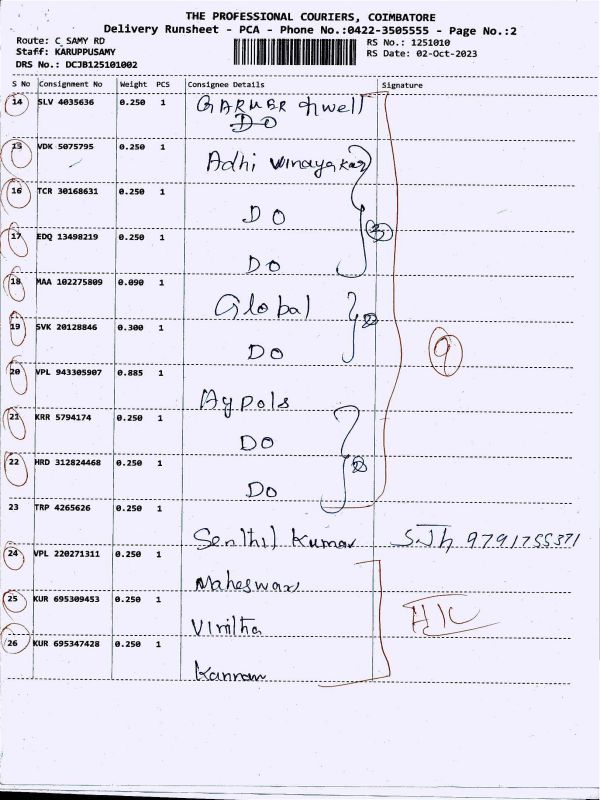 THE PROFESSIONAL COURIERS, COIMBATORE
Delivery Runsheet - PCA - Phone No.:0422-3505555 - Page No.:2
Route: C SAMY RD
Staff: KARUPPUSAMY
DRS No.: DCJB125101002
RS No.: 1251010
RS Date: 02-Oct-2023
S No Consignment No Weight PCS Consignee Details Signature
14 SLV 4035636 0.250 1
DO
15 VDK 5075795 0.250 1 Adhi Vinayakar
16 TCR 30168631 0.250 1 DO
17 EDQ 13498219 0.250 1 DO
3
18 MAA 102275809 0.090 1 Global
19 SVK 20128846 0.300 1 DO
2
9
20 VPL 943305907 0.885 1 Aypols
21 KRR 5794174 0.250 1 DO
22 HRD 312824468 0.250 1 DO
23 TRP 4265626 0.250 1 Senthil Kumar 9791755371
24 VPL 220271311 0.250 1 Maheswari
25 KUR 695309453 0.250 1
26 KUR 695347428 0.250 1 Kannan